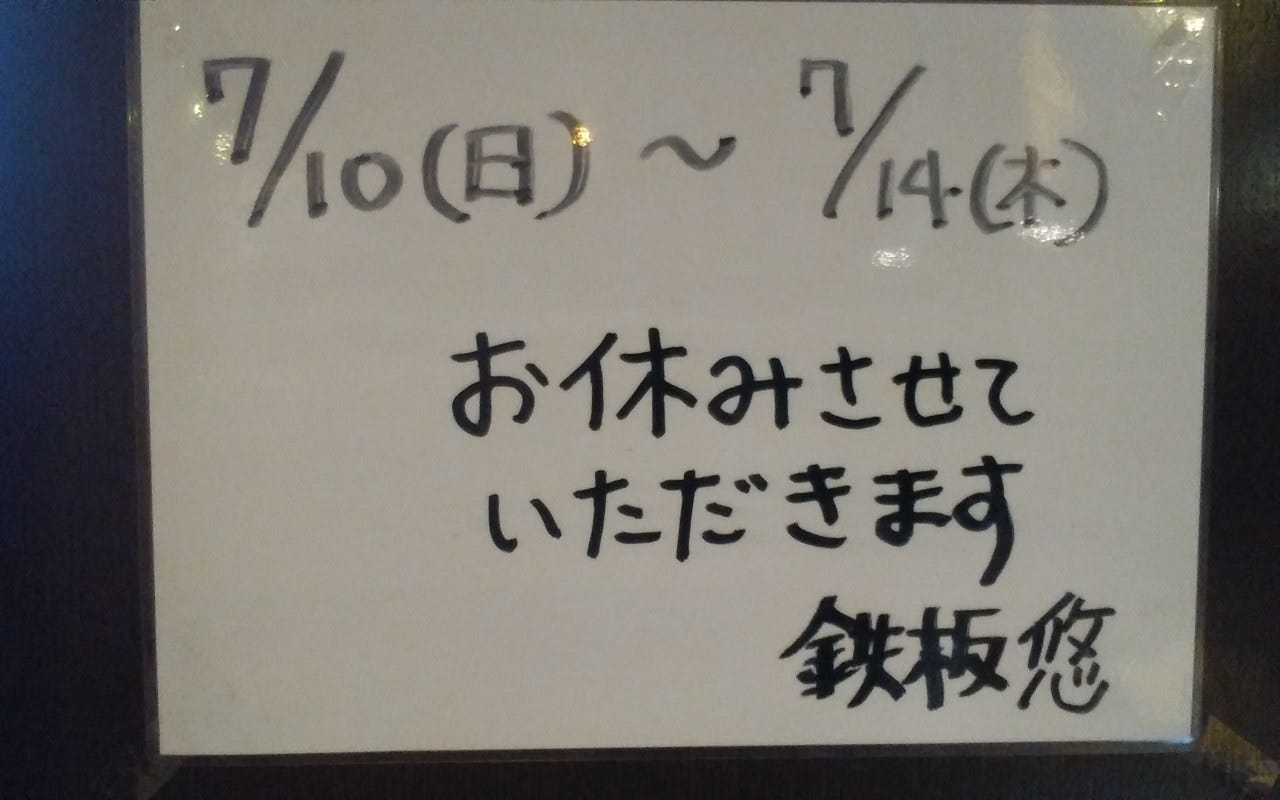 7/10(日)～7/14(木)
お休みさせて
いただきます
鉄板 悠